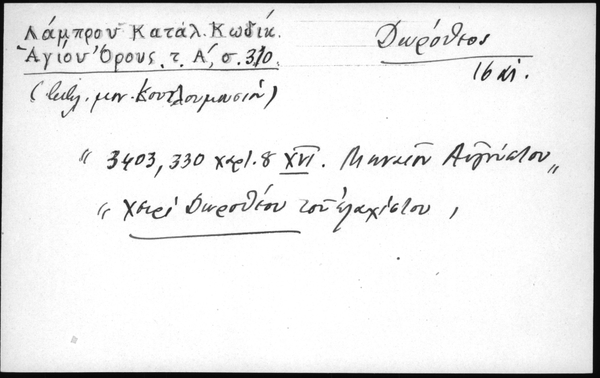 Λάμπρου Κατάλ. Κωδίκ.
Ἁγίου Ὄρους, τ. Α', σ. 310.
Δωρόθεος
16 αἰ.
(βιβλ. μον. Κουτλουμουσίου)
" 3403, 330 χαρτ. 8 XVI. Μηναῖον Αὐγούστου "
" Χειρὶ Δωροθέου τοῦ ἐλαχίστου,